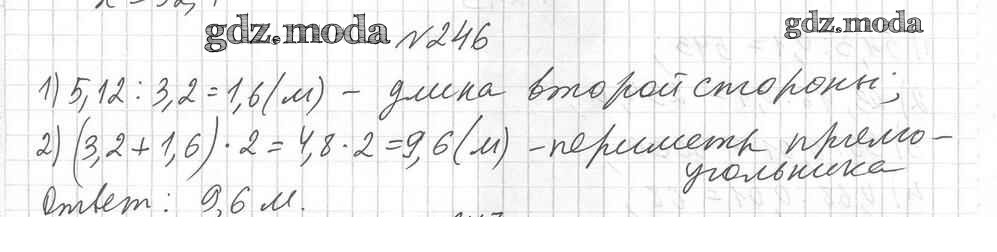 gdz.moda №246 gdz.moda
1) 5,12 : 3,2 = 1,6 (м) - длина второй стороны;
2) (3,2 + 1,6) · 2 = 4,8 · 2 = 9,6 (м) - периметр прямо-
угольника
Ответ: 9,6 м.